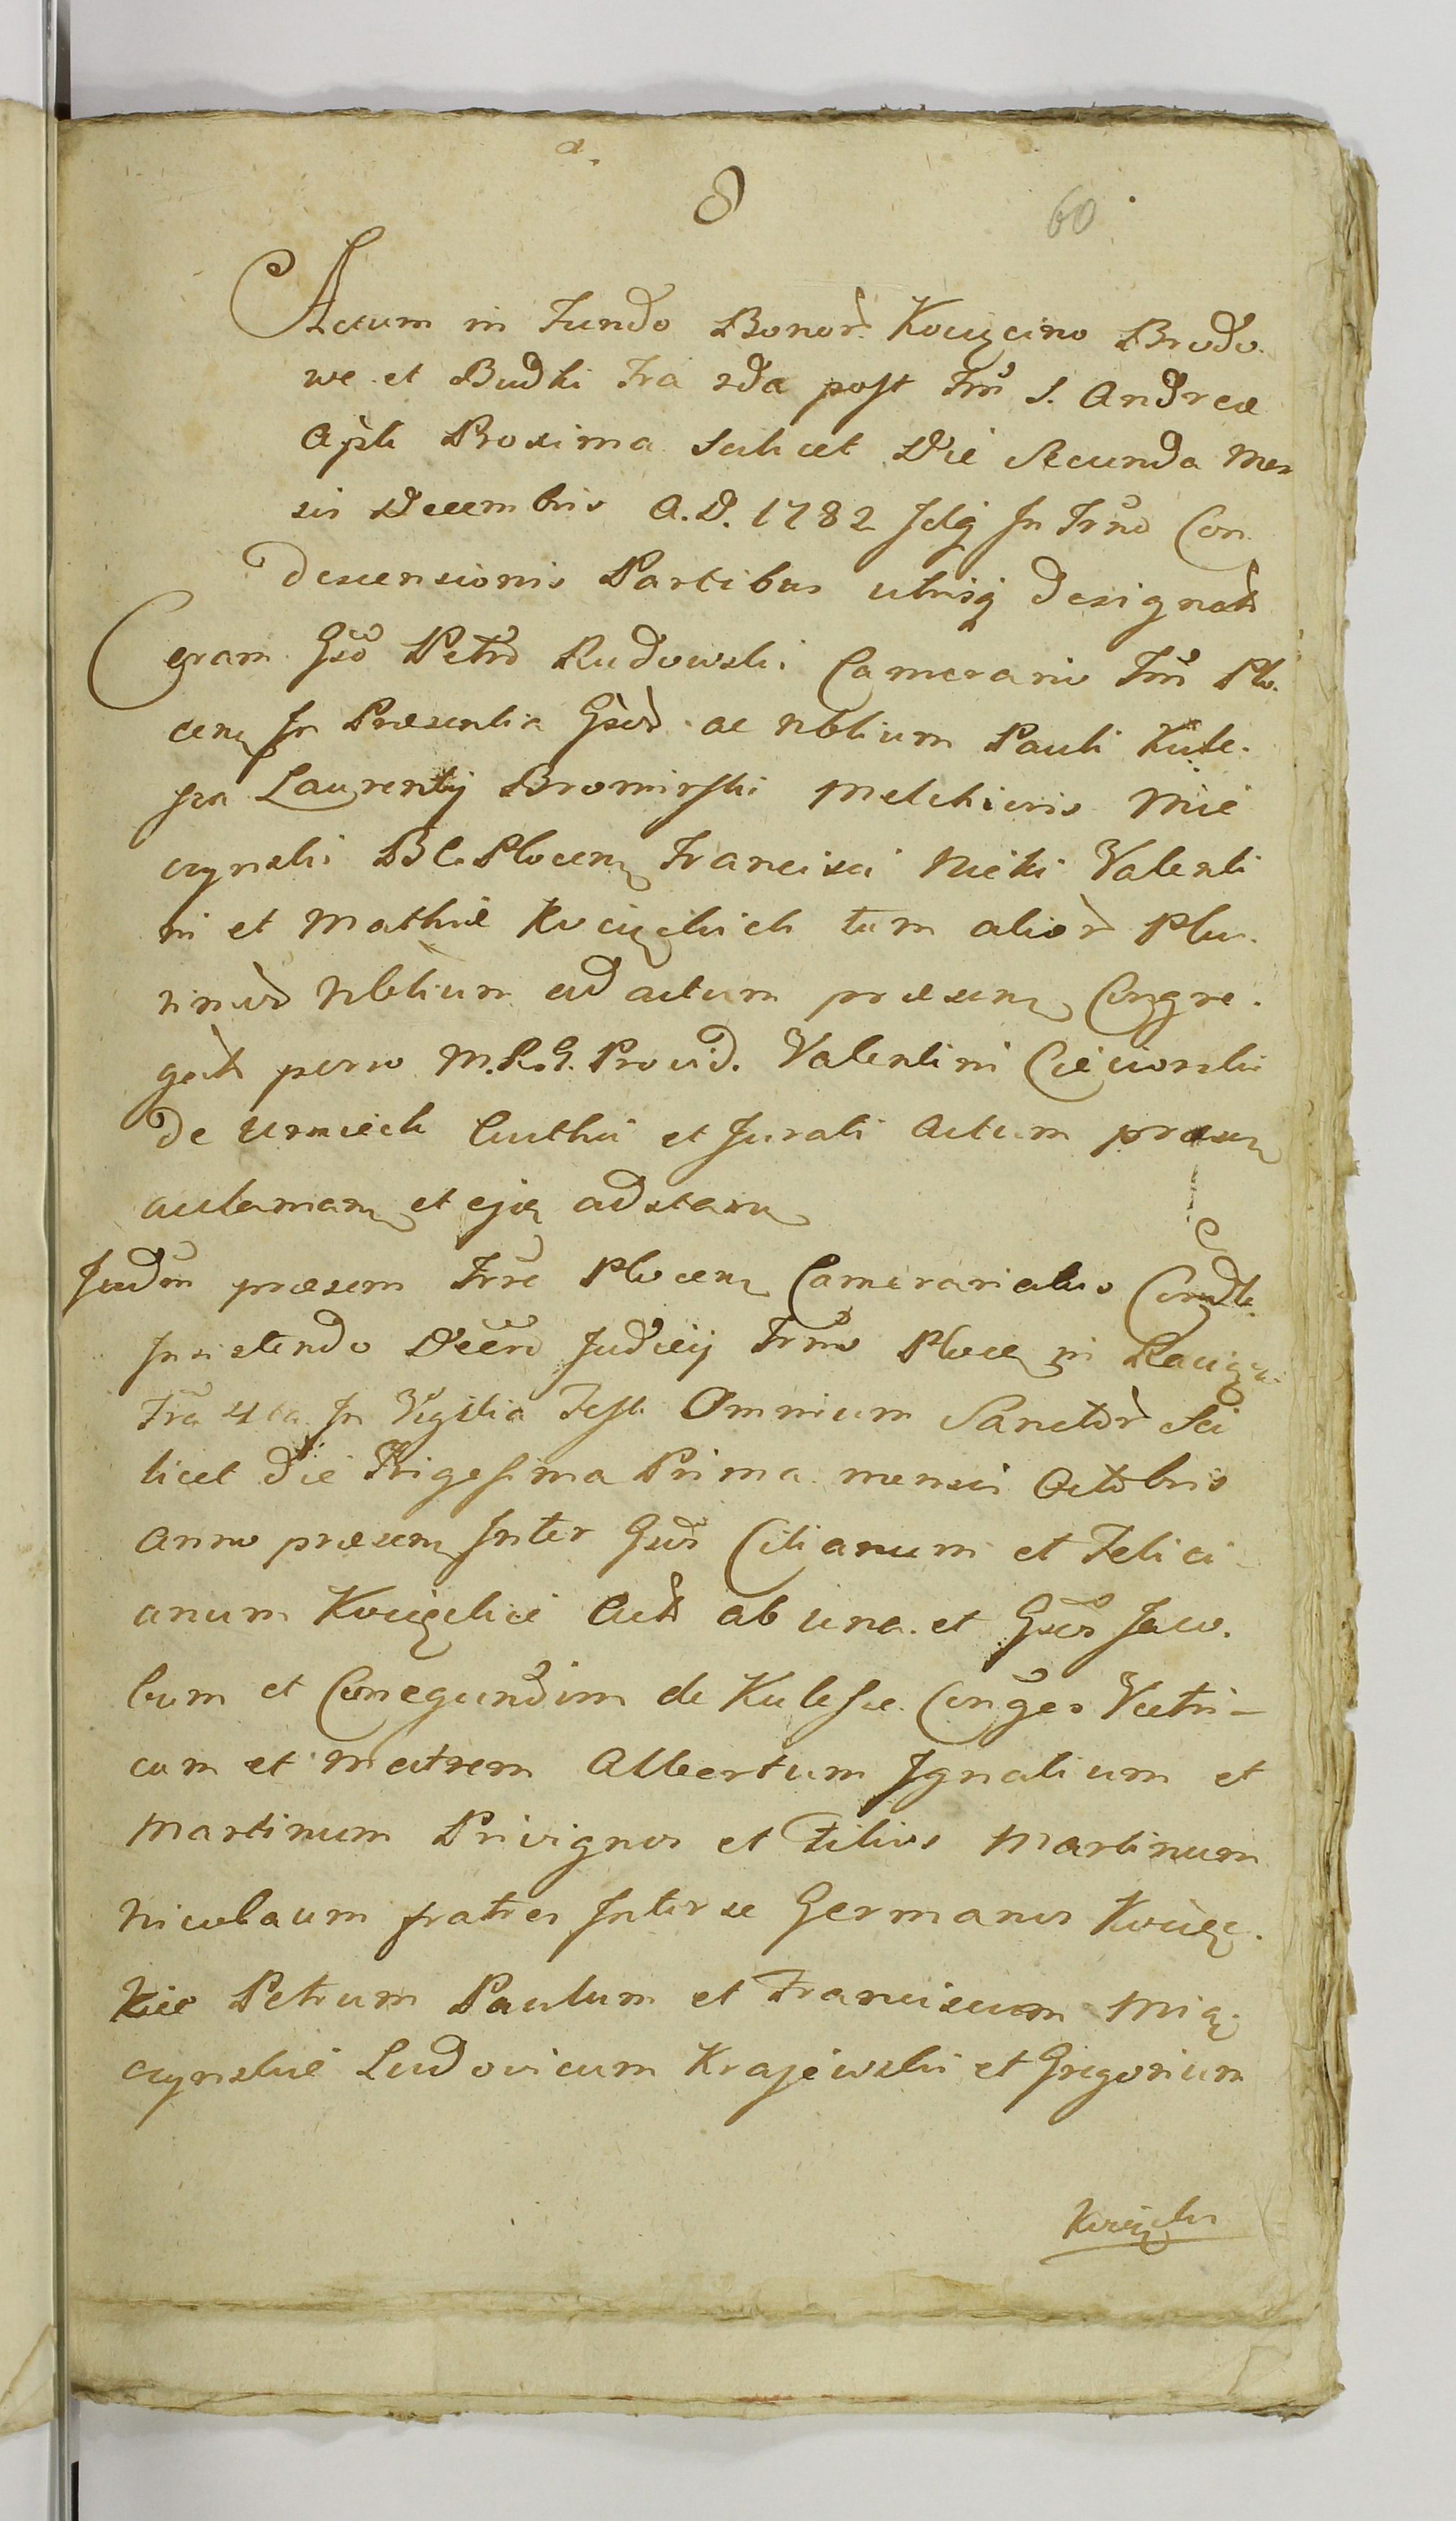 a.
8
60
Actum in Fundo Bonor. Kocięcino Brodo.
we et Budki Fra 2da post Fm S. Andreæ
Apli Proxima scilicet Die Secunda Men
sis Decembris A.D. 1782 Idq In Trno Con
descensionis Partibus utrisq designat
Coram Gso Petro Rudowski Camerario Trri Plo.
cen In Præsentia Gsor ac Nblium Pauli Kule.
sza Laurentij Bromirski Melchioris Mie
czynski B C Plocen Francisci Nicki Valenti
ni et Mathiæ Kocięckich tum alior Plu.
rimor Nblium ad actum præsen Congre.
gat pero M.R.G. Provid. Valentini Cieciorski
de Urzniech Custhu et Jurati Actum præsen
aclaman et ejq adstan
Judm præsem Trre Plocen Camerariale Condle.
Insistendo Decro Judicij Trrno Ploce in Raciąz
Fra 4ta In Vigilia Festi Omnium Sanctor Sci
licet die Trigesima Prima mensis Octobris
anno præsen Inter Gsos Cilianum et Felici
anum Kocięckie Act ab una et Gsos Jaco.
bum et Conegundim de Kulesze Conges Vitri-
cum et Matrem Albertum Ignatium et
Martinum Privignos et Filios Martinum
Nicolaum fratres Inter se Germanos Kocięc.
kie Petrum Paulum et Franciscum Mią.
czynskie Ludovicum Krajewski et Gregorium
Kocięcki